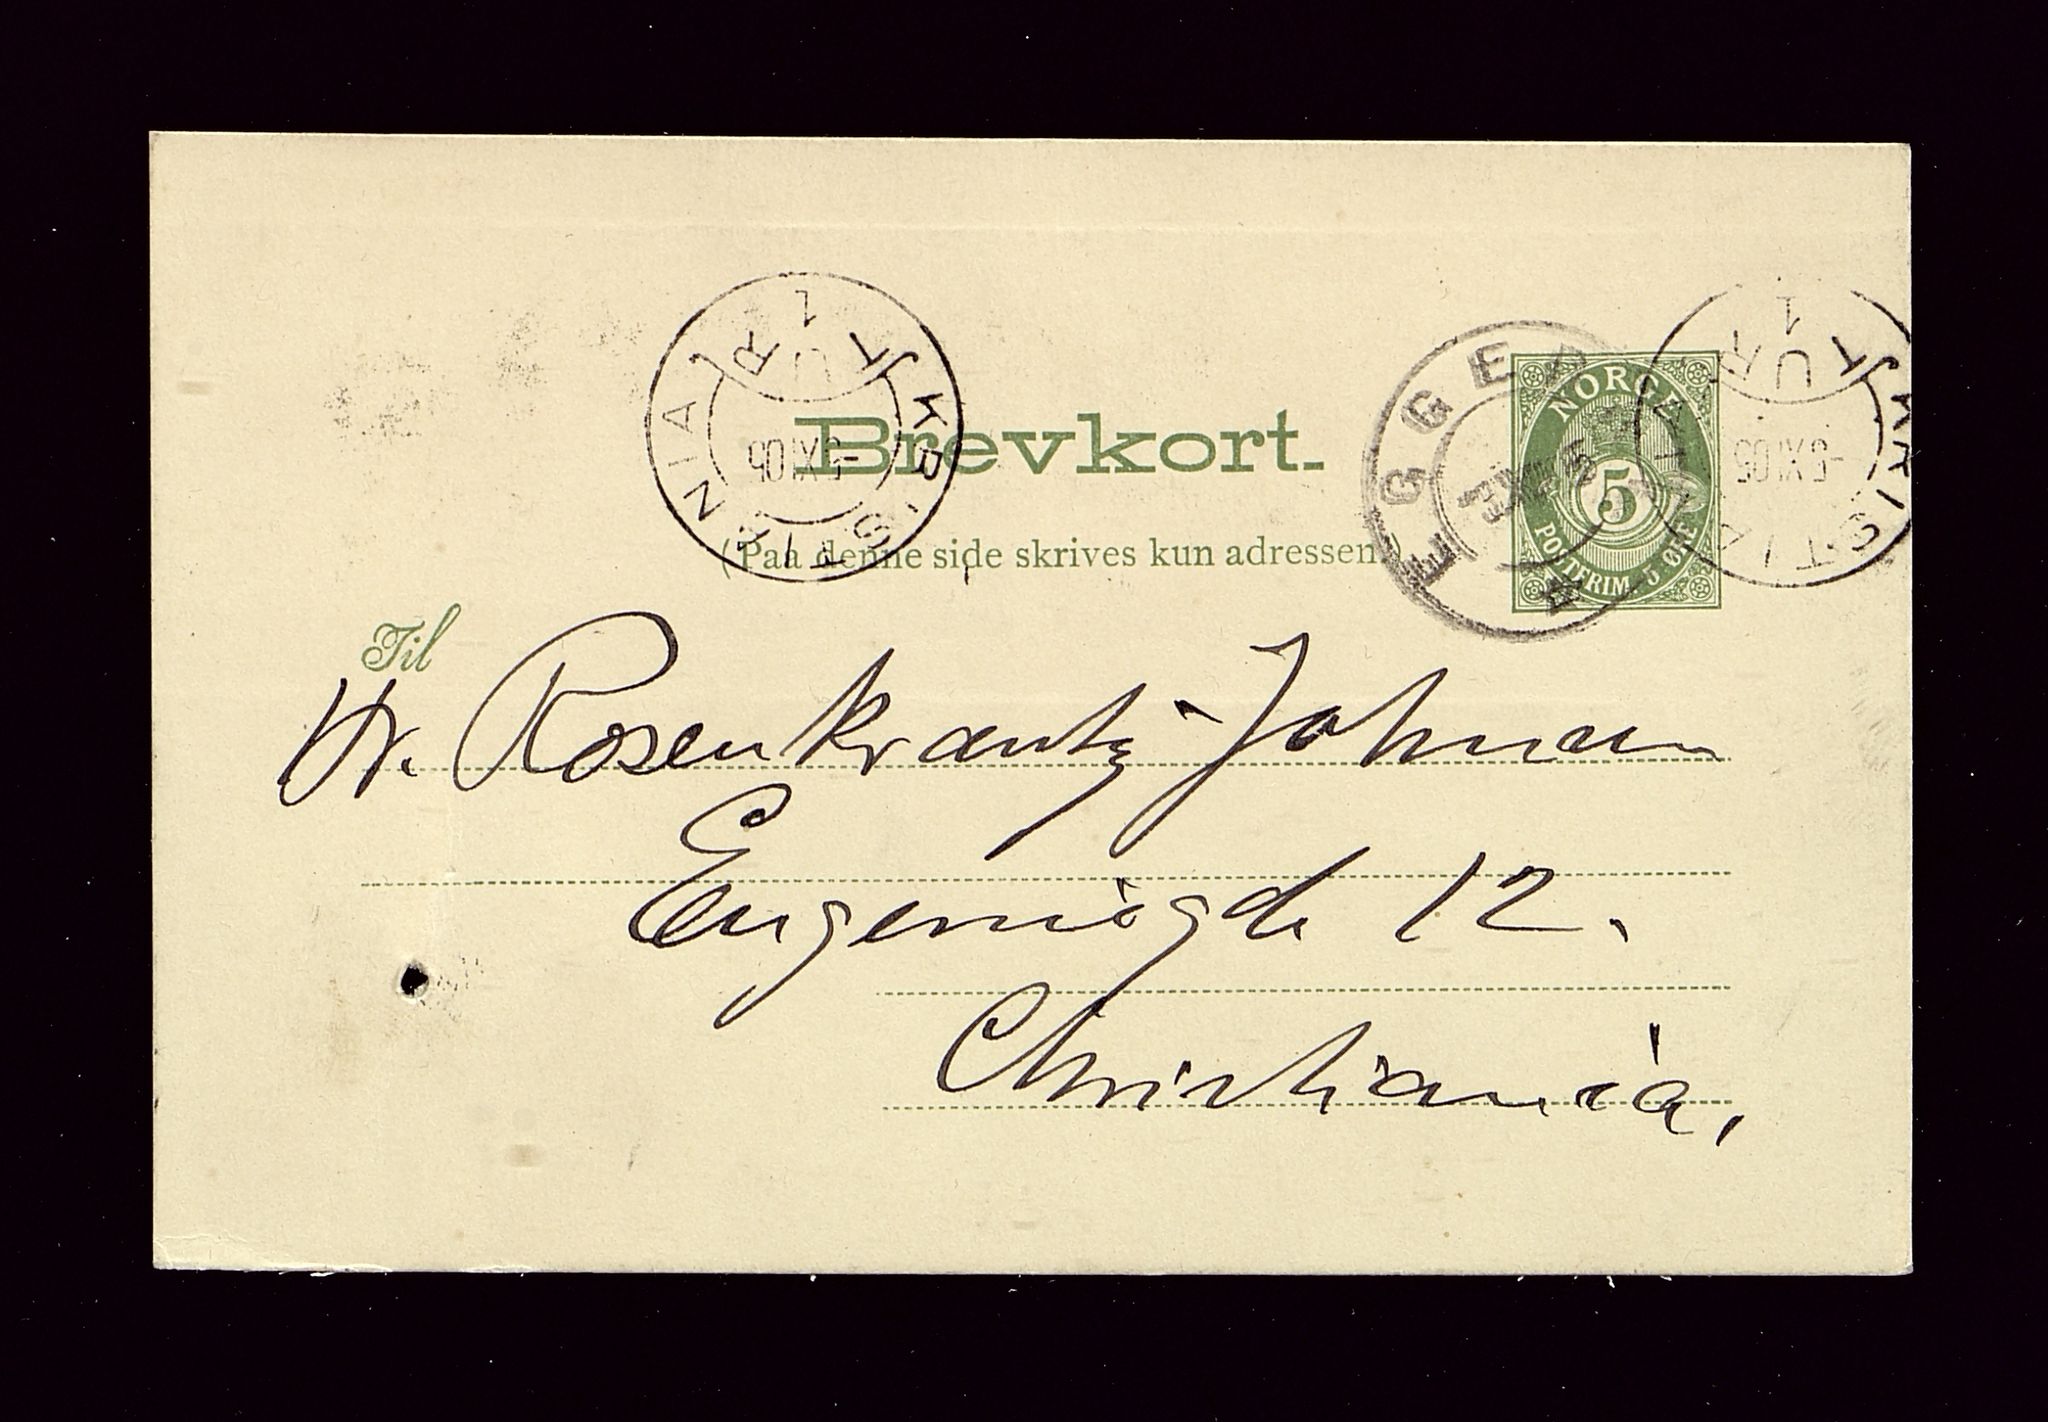 KRISTIANIA
TUR
1
-5 XI 05
KRISTIA
TUR
1
-5 XI 05
NORGE
5
POSTFRIM. 5 ØRE
Brevkort.
(Paa denne side skrives kun adressen.)
Til
Hr. Rosenkrantz Johnsen
Eugeniegde 12.
Christiania,